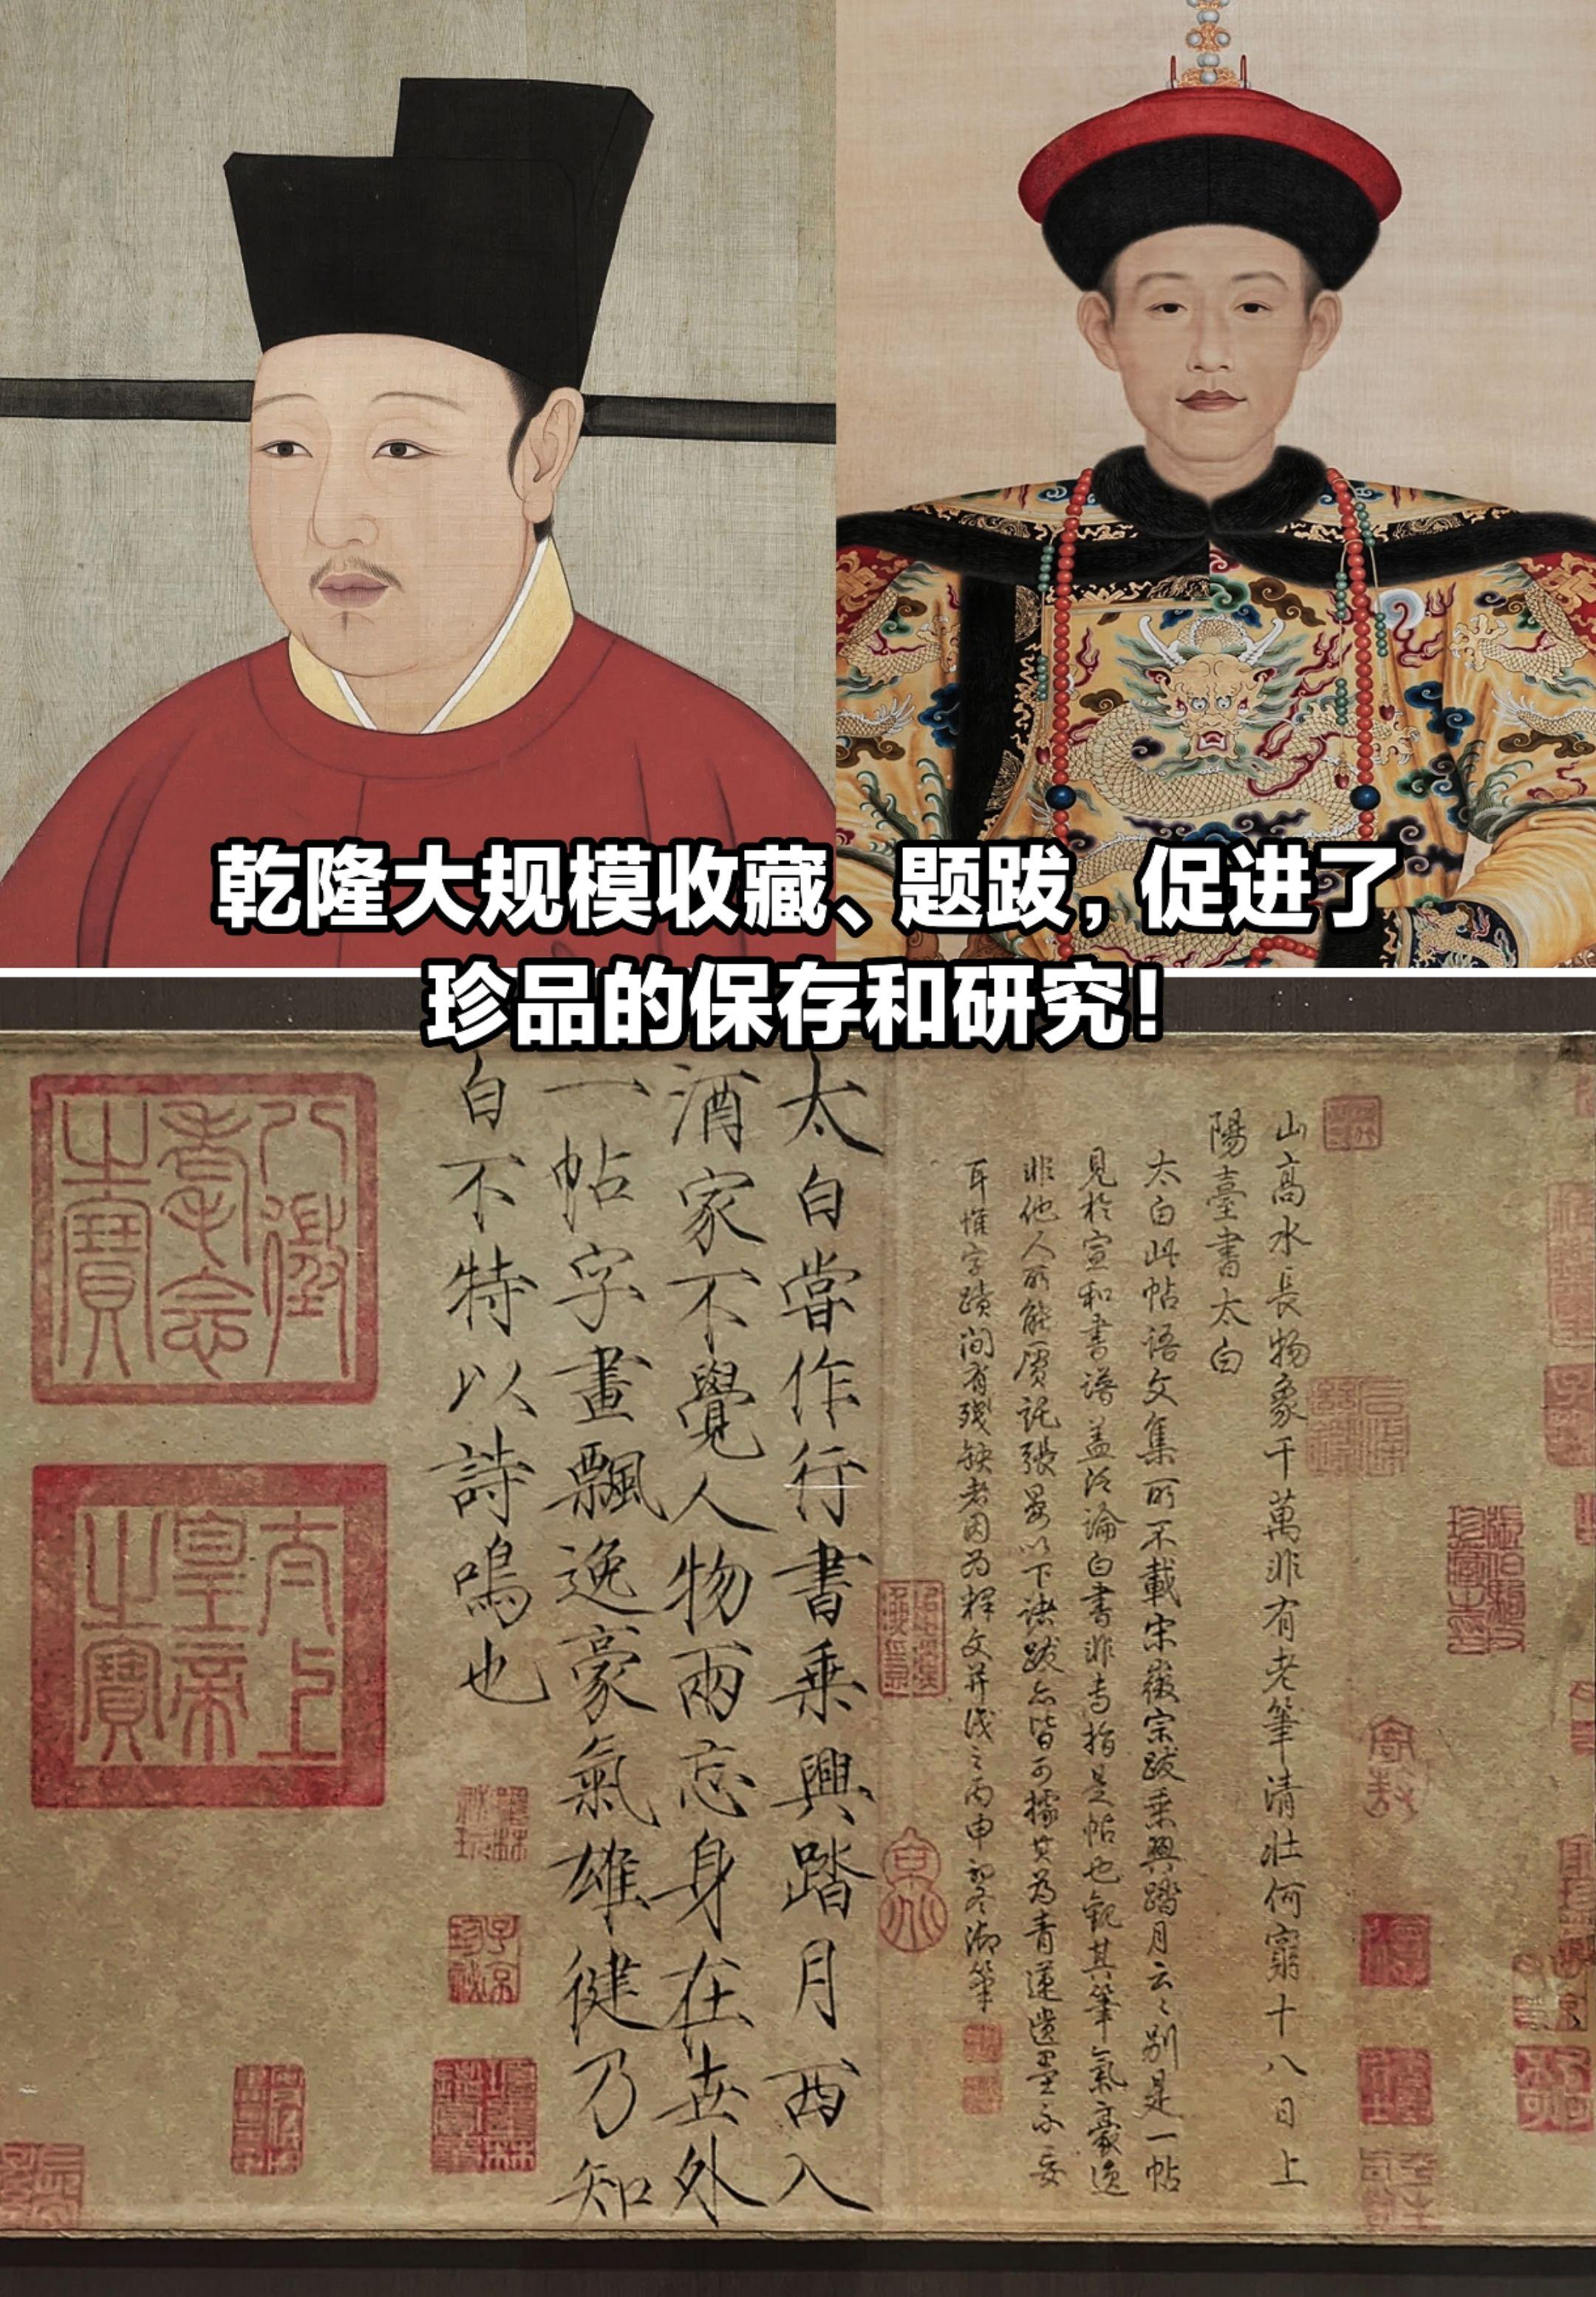 乾隆大规模收藏、题跋，促进了
珍品的保存和研究！
山高水長物象千萬非有老筆清壯何窮十八日上
陽臺書太白
太白此帖語文集所不載宋徽宗跋乗興踏月云〻别是一帖
見於宣和書譜蓋泛論白書非專指是帖也觀其筆氣豪逸
非他人所能贋託張晏以下諸跋亦皆可據其為青蓮遺墨不妄
耳惟字蹟間有殘缺者因為釋文并識之丙申初冬御筆
太白嘗作行書乗興踏月西入
酒家不覺人物兩忘身在世外
一帖字畫飄逸豪氣雄健乃知
白不特以詩鳴也
八徵
耄念
之寶
太上
皇帝
之寶